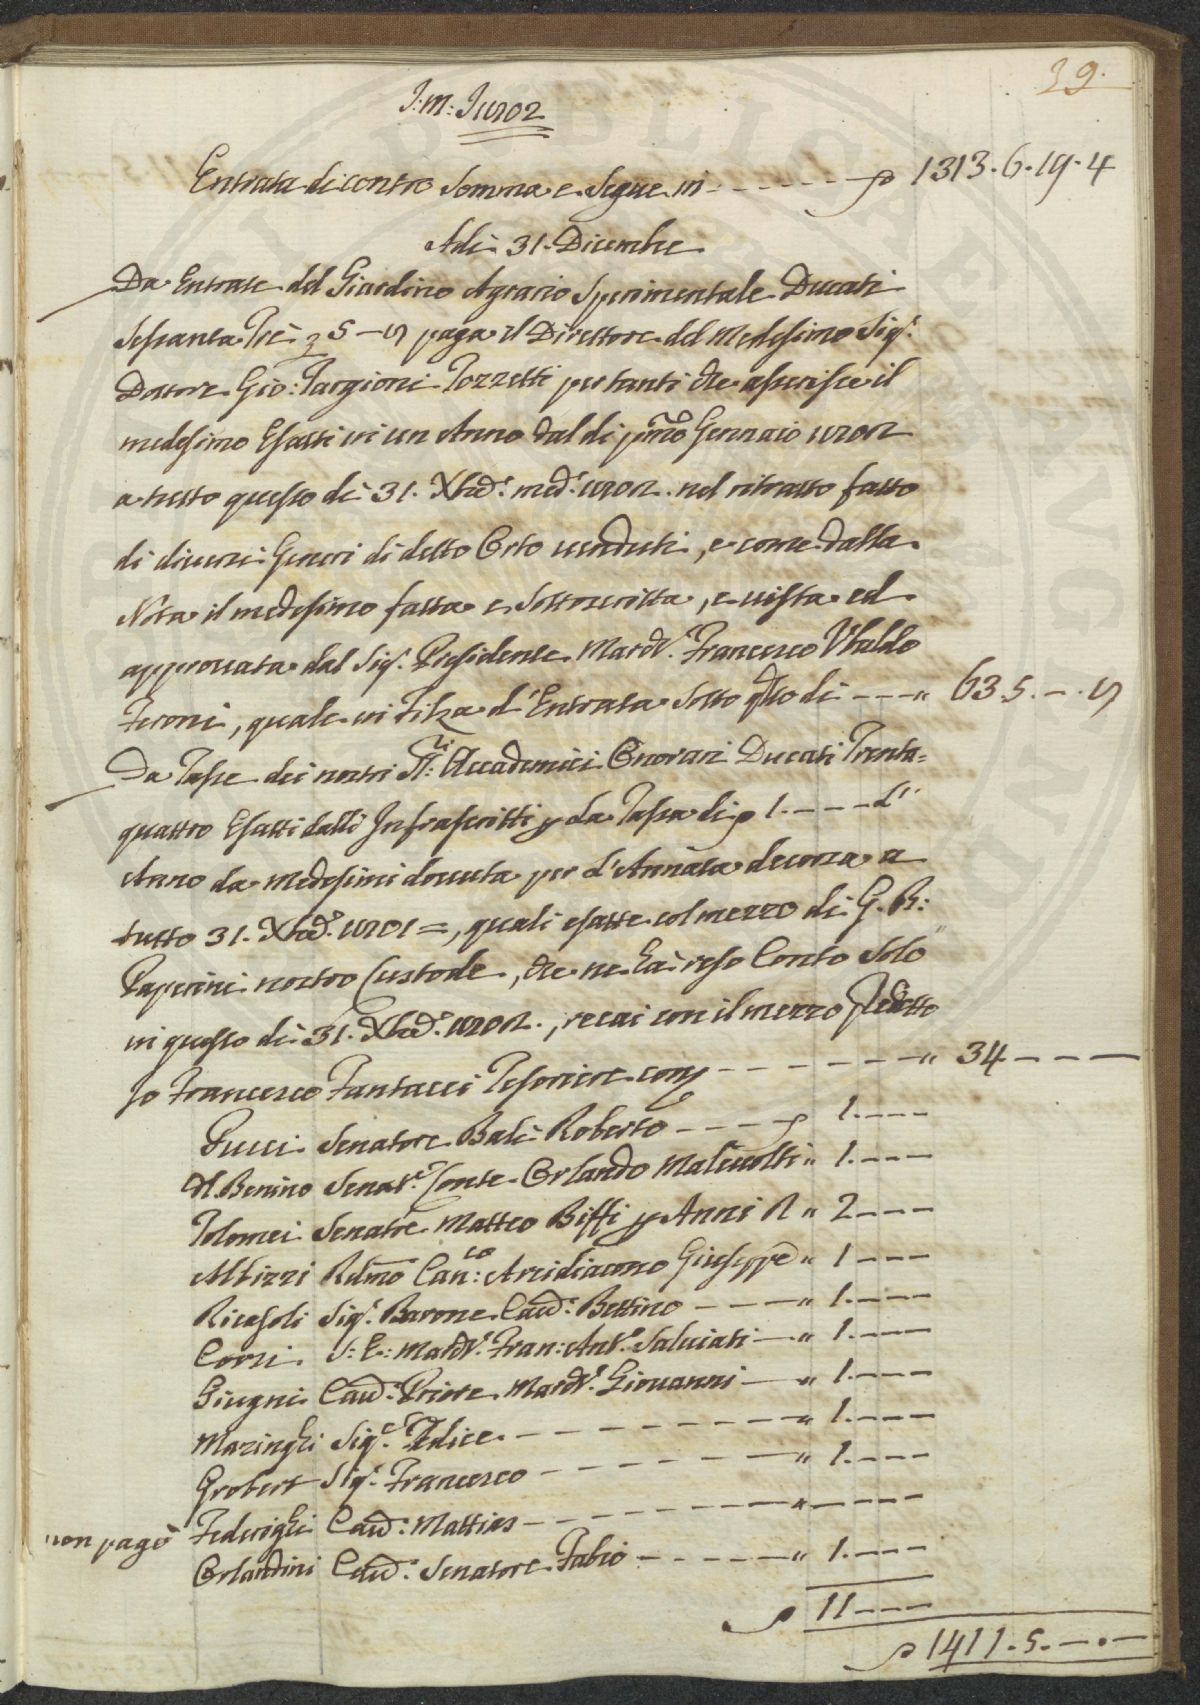 39.
J: M: J 1802
Entrata di contro Somma e Segue in - - - - - - 1313. 6. 19. 4
Adi 31. Dicembre
Da Entrate del Giardino Agrario Sperimentale Ducati
Sessanta Tre 5 — 8 paga il Direttore del Medesimo Sigr.
Dottore Gio: Targioni Tozzetti per tanti che asserisce il
medesimo Esatti in un Anno dal di pmo Gennaio 1802
a tutto questo dì 31. Xbre. med. 1802. nel ritratto fatto
di diversi Generi di detto Orto venduti, e come dalla
Nota il medesimo fatta e Sottoscritta, e vista ed
approvata dal Sigr. Presidente March. Francesco Ubaldo
Feroni, quale in Filza d'Entrata Sotto qsto di - - - " 63. 5. — . 8
Da Tasse dei nostri Accademici Onorari Ducati Trenta=
quattro Esatti dalli Infrascritti p da Tassa di 1. - - - - L'
Anno da Medesimi dovuta per L'Annata decorsa a
tutto 31. Xbre. 1801 =, quali esatte col mezzo di G. B:
Paperini nostro Custode, che ne ha reso Conto Solo
in questo di 31. Xbre. 1802., recai con il mezzo Pedetto
Io Francesco Fantacci Tesoriere con - - - - - - - " 34 - - -
Pucci Senatore Balì Roberto - - - - 1. - - -
Del Benino Senat. Conte Orlando Malevolti " 1. - - -
Tolomei Senatre Matteo Biffi p Anni 2 " 2 - - -
Albizzi Rdmo Can:co Arcidiacono Giuseppe " 1 - - -
Ricasoli Sigr. Barone Cav. Bettino - - - - " 1. - - -
Corsi S: E: March. Fran: Anto Salviati — " 1. - - -
Giugni Cav. Priore March. Giovanni — " 1. - - -
Mazinghi Sigr. Felice - - - - - - - " 1. - - -
Grobert Sigr. Francesco - - - - - - - " 1. - - -
non pagò Federighi Cav. Mattias - - - - - - - " - - - -
Orlandini Cav. Senatore Fabio - - - - - " 1. - - -
11 - - -
1411. 5. — . —